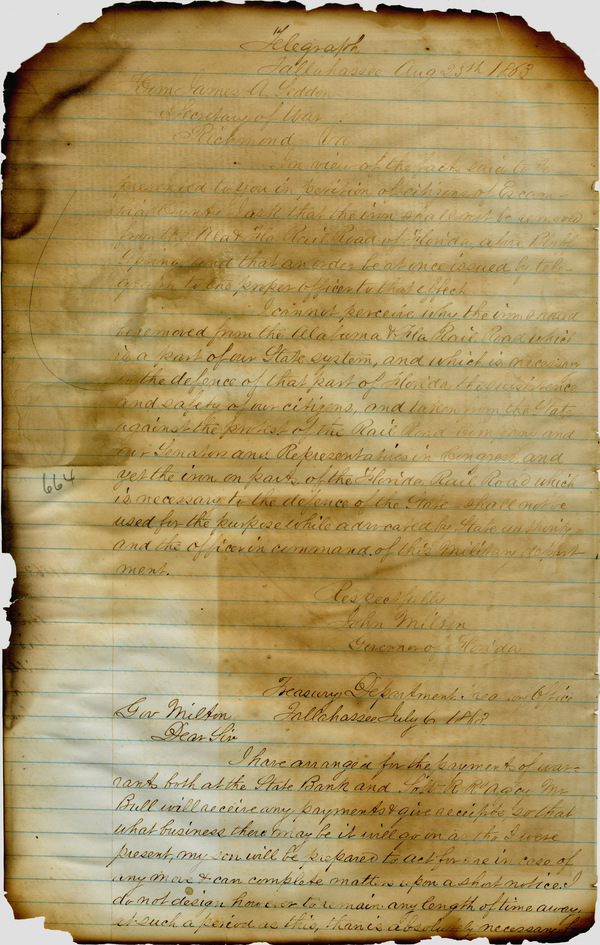 Telegraph
Tallahassee Aug 25th 1863
Hon James A Seddon
Secretary of War
Richmond Va
In view of the facts said to be
presented to you in petition of citizens of Escam-
bia County I ask that the iron shall not be removed
from the Ala & Fla Rail Road of Florida, above Pine
and that an order be at once issued by tele-
gram to the proper officer to that effect.
I cannot perceive why the iron should
be removed from the Alabama & Fla Rail Road which
is a part of our State system, and which is necessary
in the defence of that part of Florida the subsistence
and safety of our citizens, and taken from the State
against the protest of the Rail Road Company and
our Senators and Representatives in Congress, and
yet the iron on parts of the Florida Rail Road which
is necessary to the defence of the State shall not be
used for the purpose while advocated by State authority
and the officer in command of this Military depart-
ment.
Respectfully
John Milton
Governor of Florida
664
Treasury Department Office
Gov Milton Tallahassee July 6 1863
Dear Sir
I have arranged for the payment of war-
rants both at the State Bank and R R Agcy Mr
Bull will receive any payments & give receipts so that
what business there may be it will go on as tho I were
present, my son will be prepared to act for me in case of
any more & can complete matters upon a short notice. I
do not design however to remain any length of time away,
at such a period as this, than is absolutely necessary